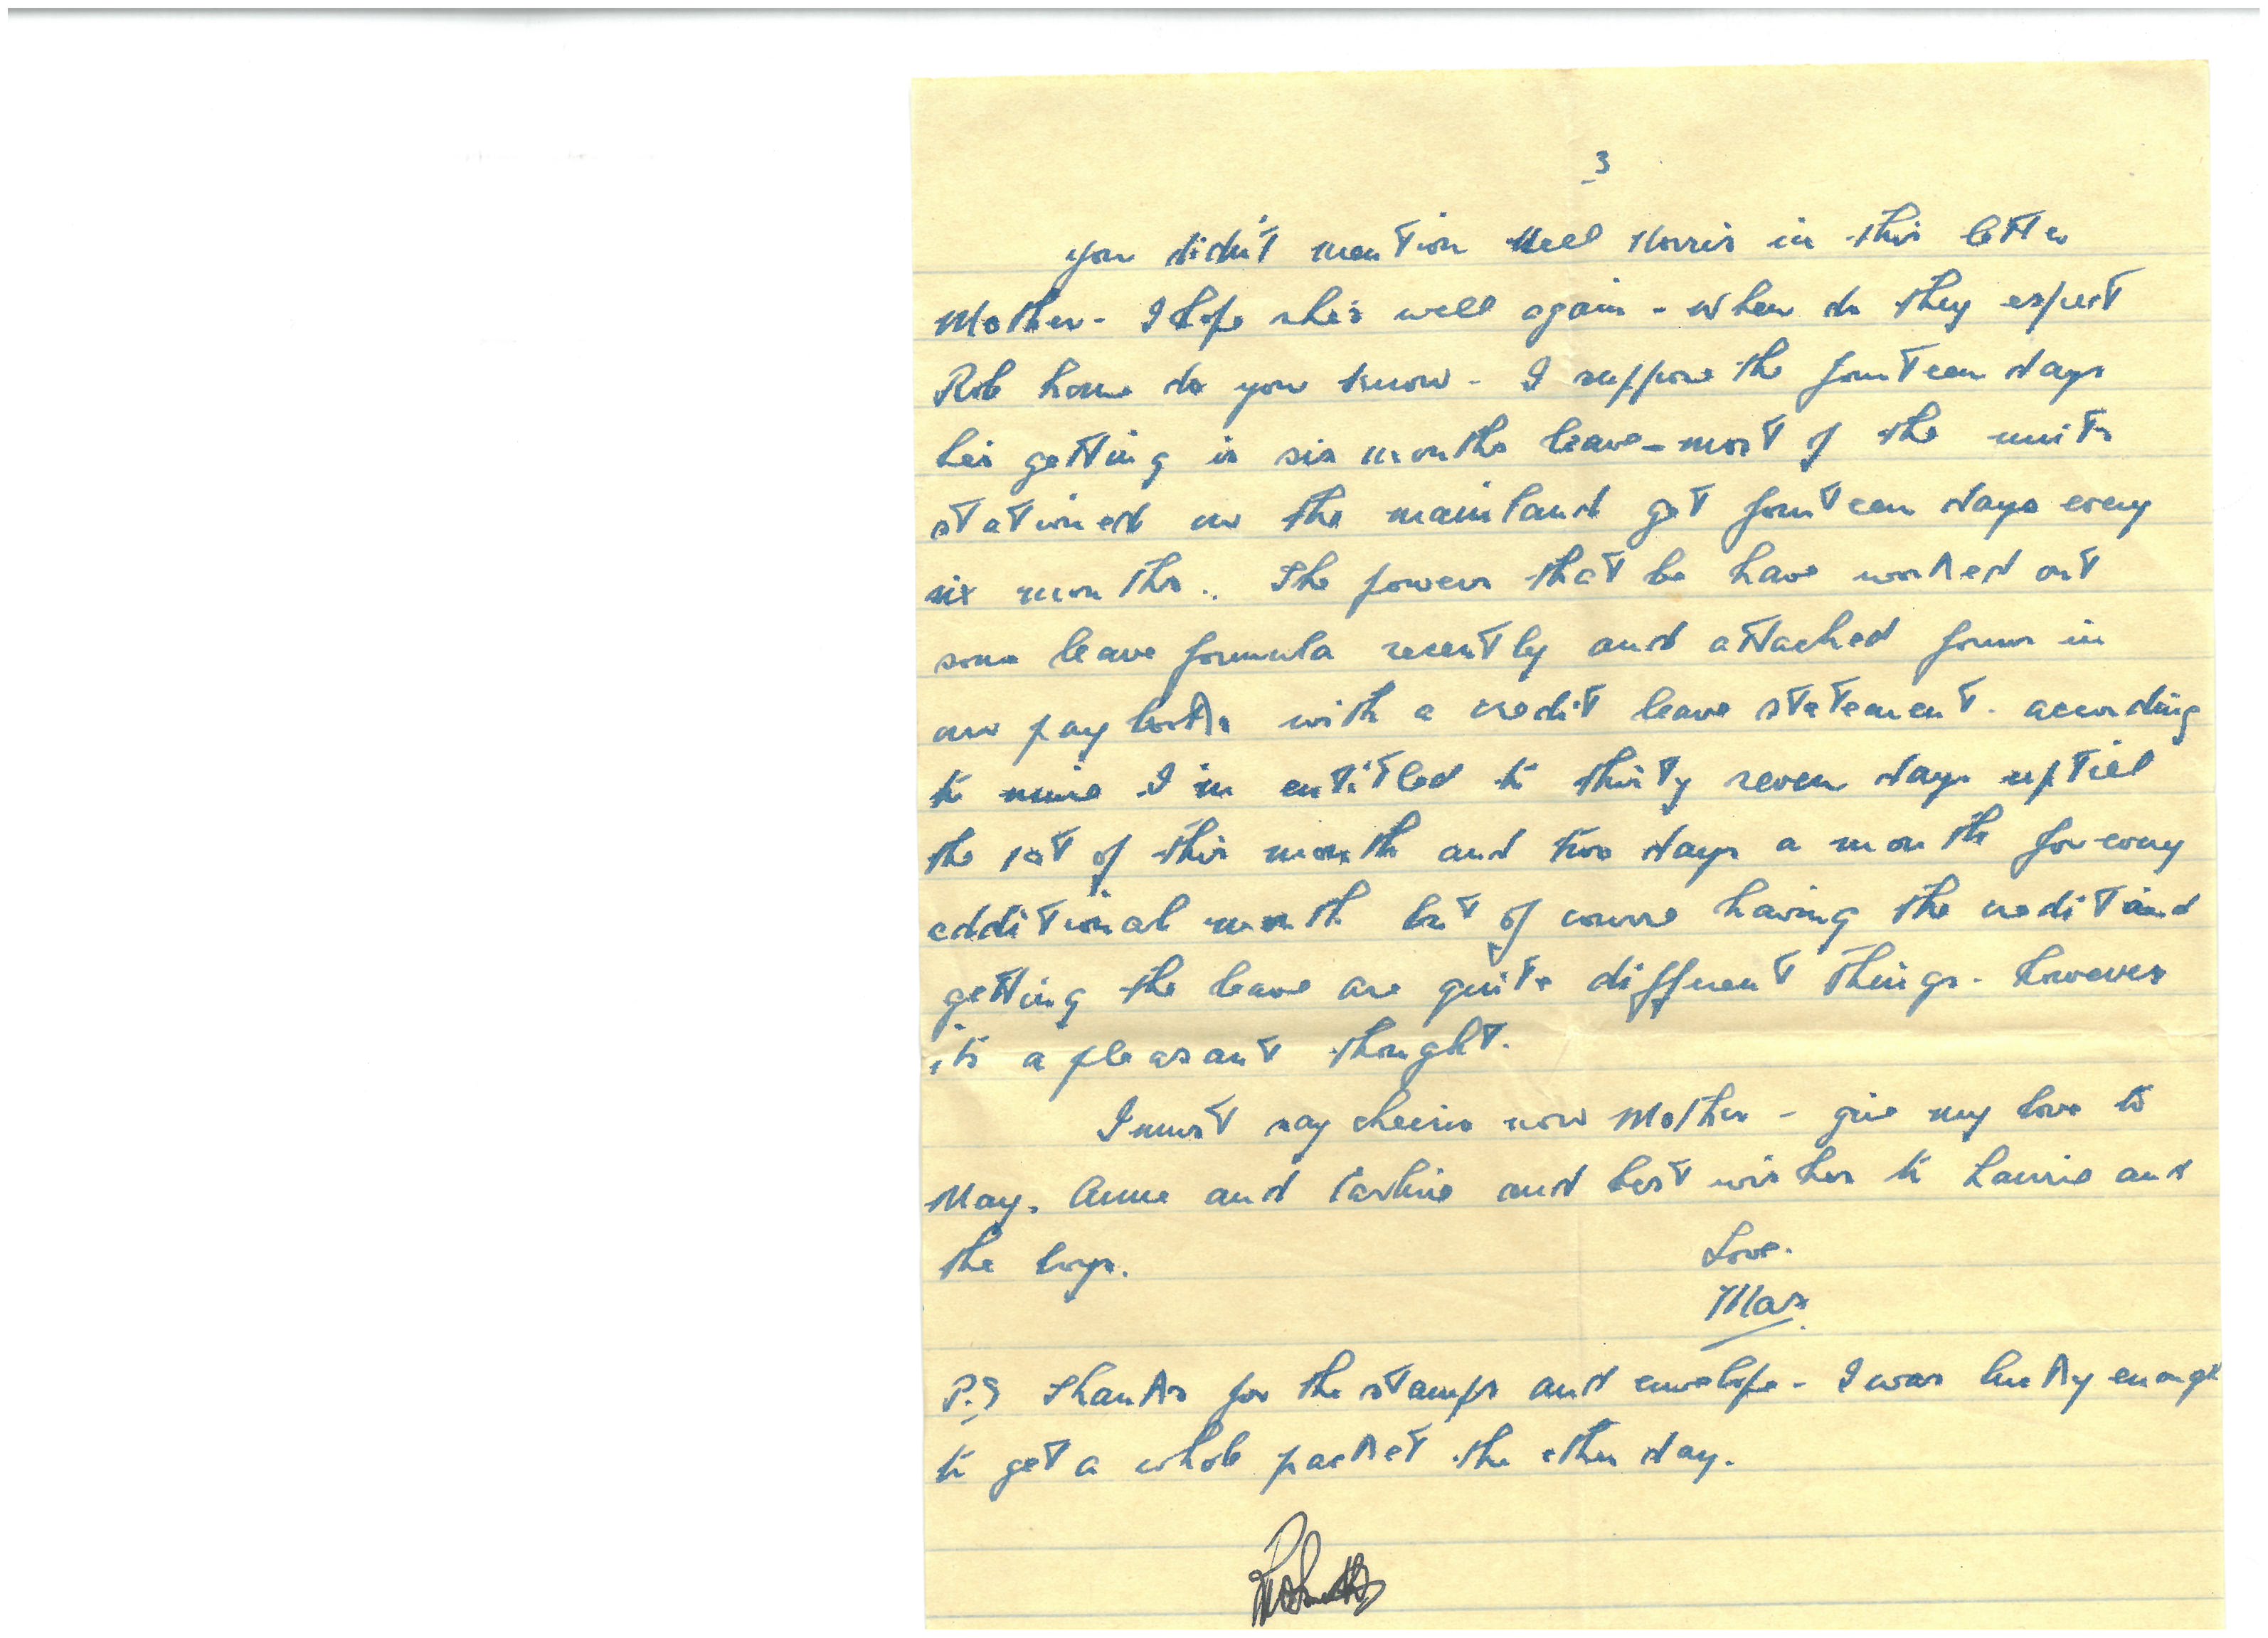 3
You didn't mention Nell Norris in this letter
Mother - I hope she's well again - when do they expect
Rob home do you know - I suppose the fourteen days
he's getting is six months leave - most of the units
stationed on the mainland get fourteen days every
six months.. The powers that be have worked out
some leave formula recently and attached forms in
our pay books with a credit leave statement. according
to mine I'm entitled to thirty seven days up till
the 1st of this month and two days a month for every
additional month but of course having the credit and
getting the leave are quite different things. however
it's a pleasant thought.
I must say cheerio now Mother - give my love to
May. Anne and and best wishes to Laurie and
the boys.
Love.
Max.
P.S Thanks for the stamps and envelope - I was lucky enough
to get a whole packet the other day.